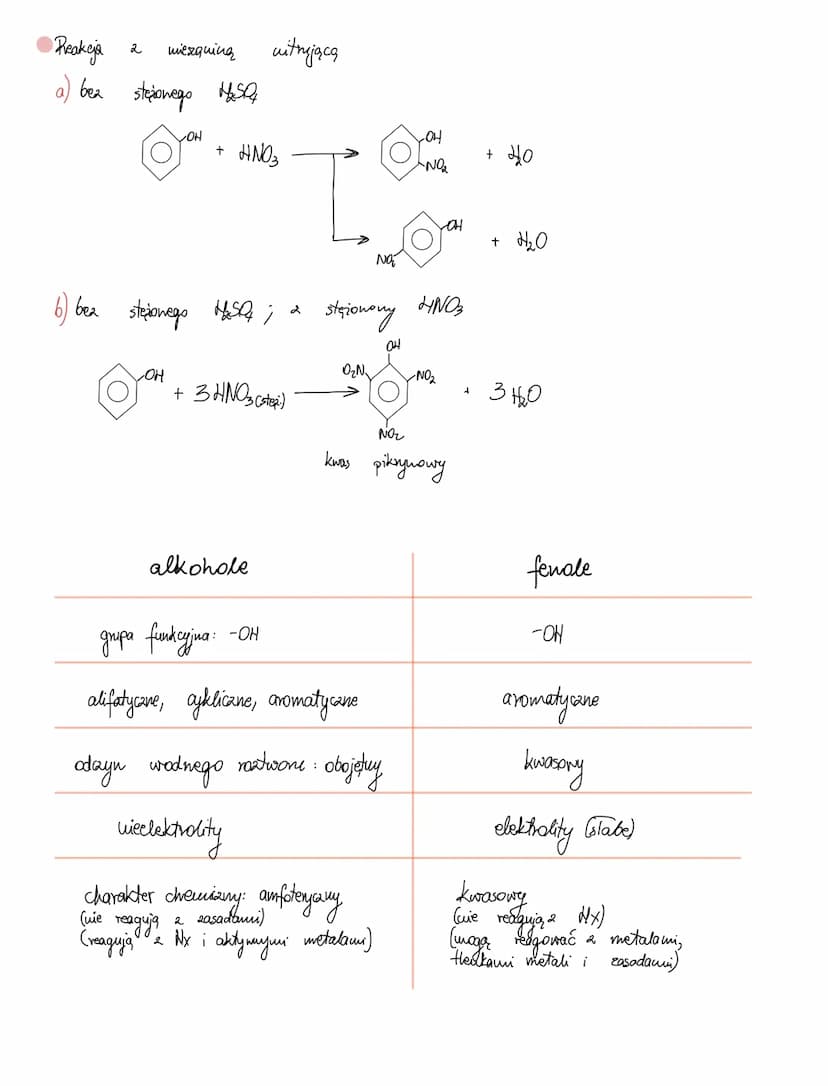 Reakcja z mieszaniną nitrującą
a) bez stężonego H₂SO₄
-OH + HNO₃ → -OH -NO₂ + H₂O
NO₂ -OH + H₂O
b) bez stężonego H₂SO₄ ; z stężonym HNO₃
-OH + 3HNO₃ (stęż.) → OH O₂N -NO₂ NO₂ + 3H₂O
kwas pikrynowy
alkohole fenole
grupa funkcyjna: -OH -OH
alifatyczne, cykliczne, aromatyczne aromatyczne
odczyn wodnego roztworu: obojętny kwasowy
nieelektrolity elektrolity (słabe)
charakter chemiczny: amfoteryczny kwasowy
(nie reagują z zasadami) (nie reagują z HX)
(reagują z HX i aktywnymi metalami) (mogą reagować z metalami,
tlenkami metali i zasadami)